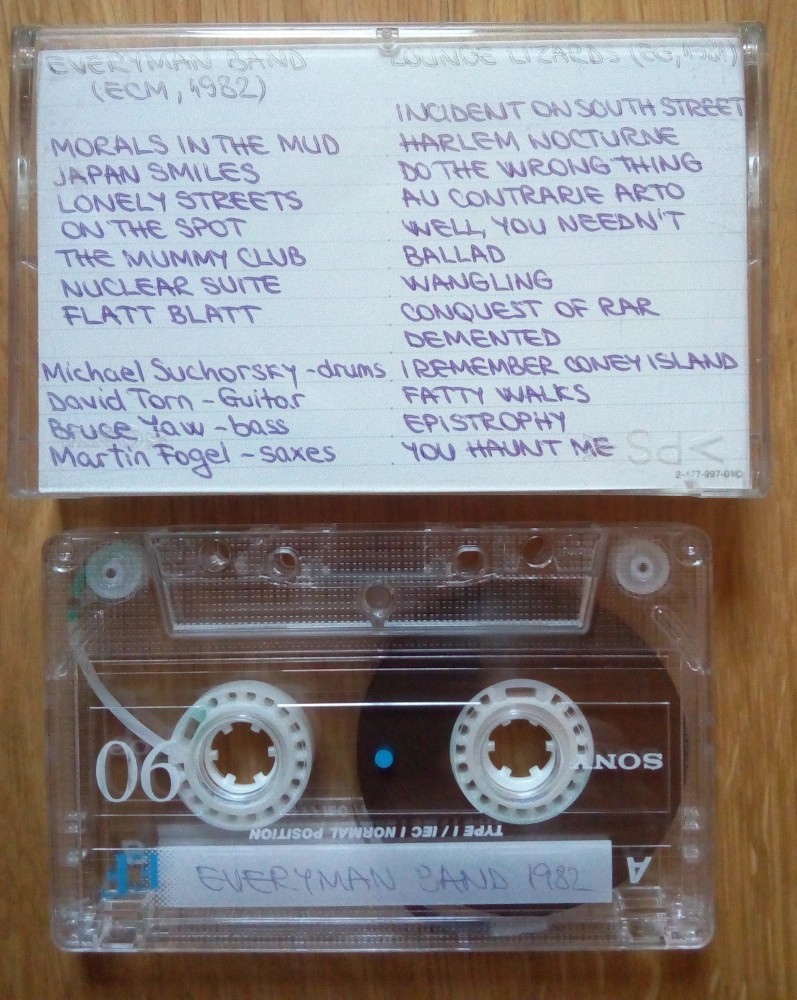 EVERYMAN BAND
(ECM, 1982)
MORALS IN THE MUD
JAPAN SMILES
LONELY STREETS
ON THE SPOT
THE MUMMY CLUB
NUCLEAR SUITE
FLATT BLATT
Michael Suchorsky - drums
David Torn - Guitar
Bruce Yaw - bass
Martin Fogel - saxes
LOUNGE LIZARDS (EG, 1981)
INCIDENT ON SOUTH STREET
HARLEM NOCTURNE
DO THE WRONG THING
AU CONTRARIE ARTO
WELL, YOU NEEDN'T
BALLAD
WANGLING
CONQUEST OF RAR
DEMENTED
I REMEMBER CONEY ISLAND
FATTY WALKS
EPISTROPHY
YOU HAUNT ME
>PS
90
SONY
TYPE I / IEC I NORMAL POSITION
EF
A
EVERYMAN BAND 1982